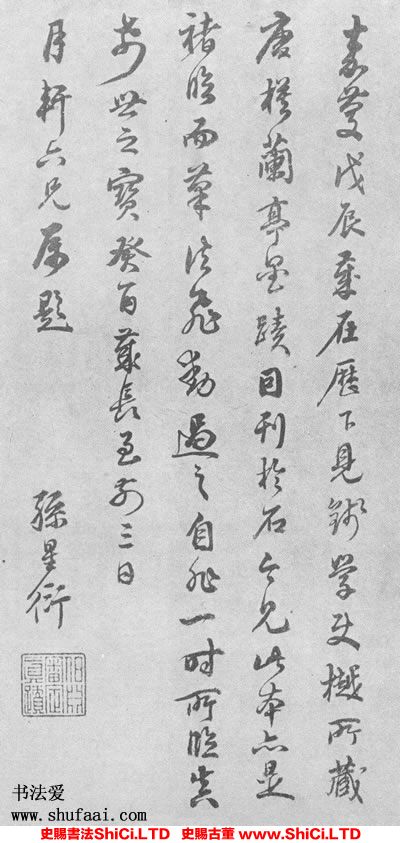 嘉慶戊辰歲在歷下見錢學使樾所藏
唐橅蘭亭墨蹟因刊於石今見此本亦是
褚臨而筆法飛動過之自非一時所臨真
希世之寶癸酉歲長至前三日
月軒六兄屬題
孫星衍
伯淵審定真蹟
书法爱
www.shufaai.com
史賜書法ShiCi.LTD 史賜古董 www.ShiCi.LTD